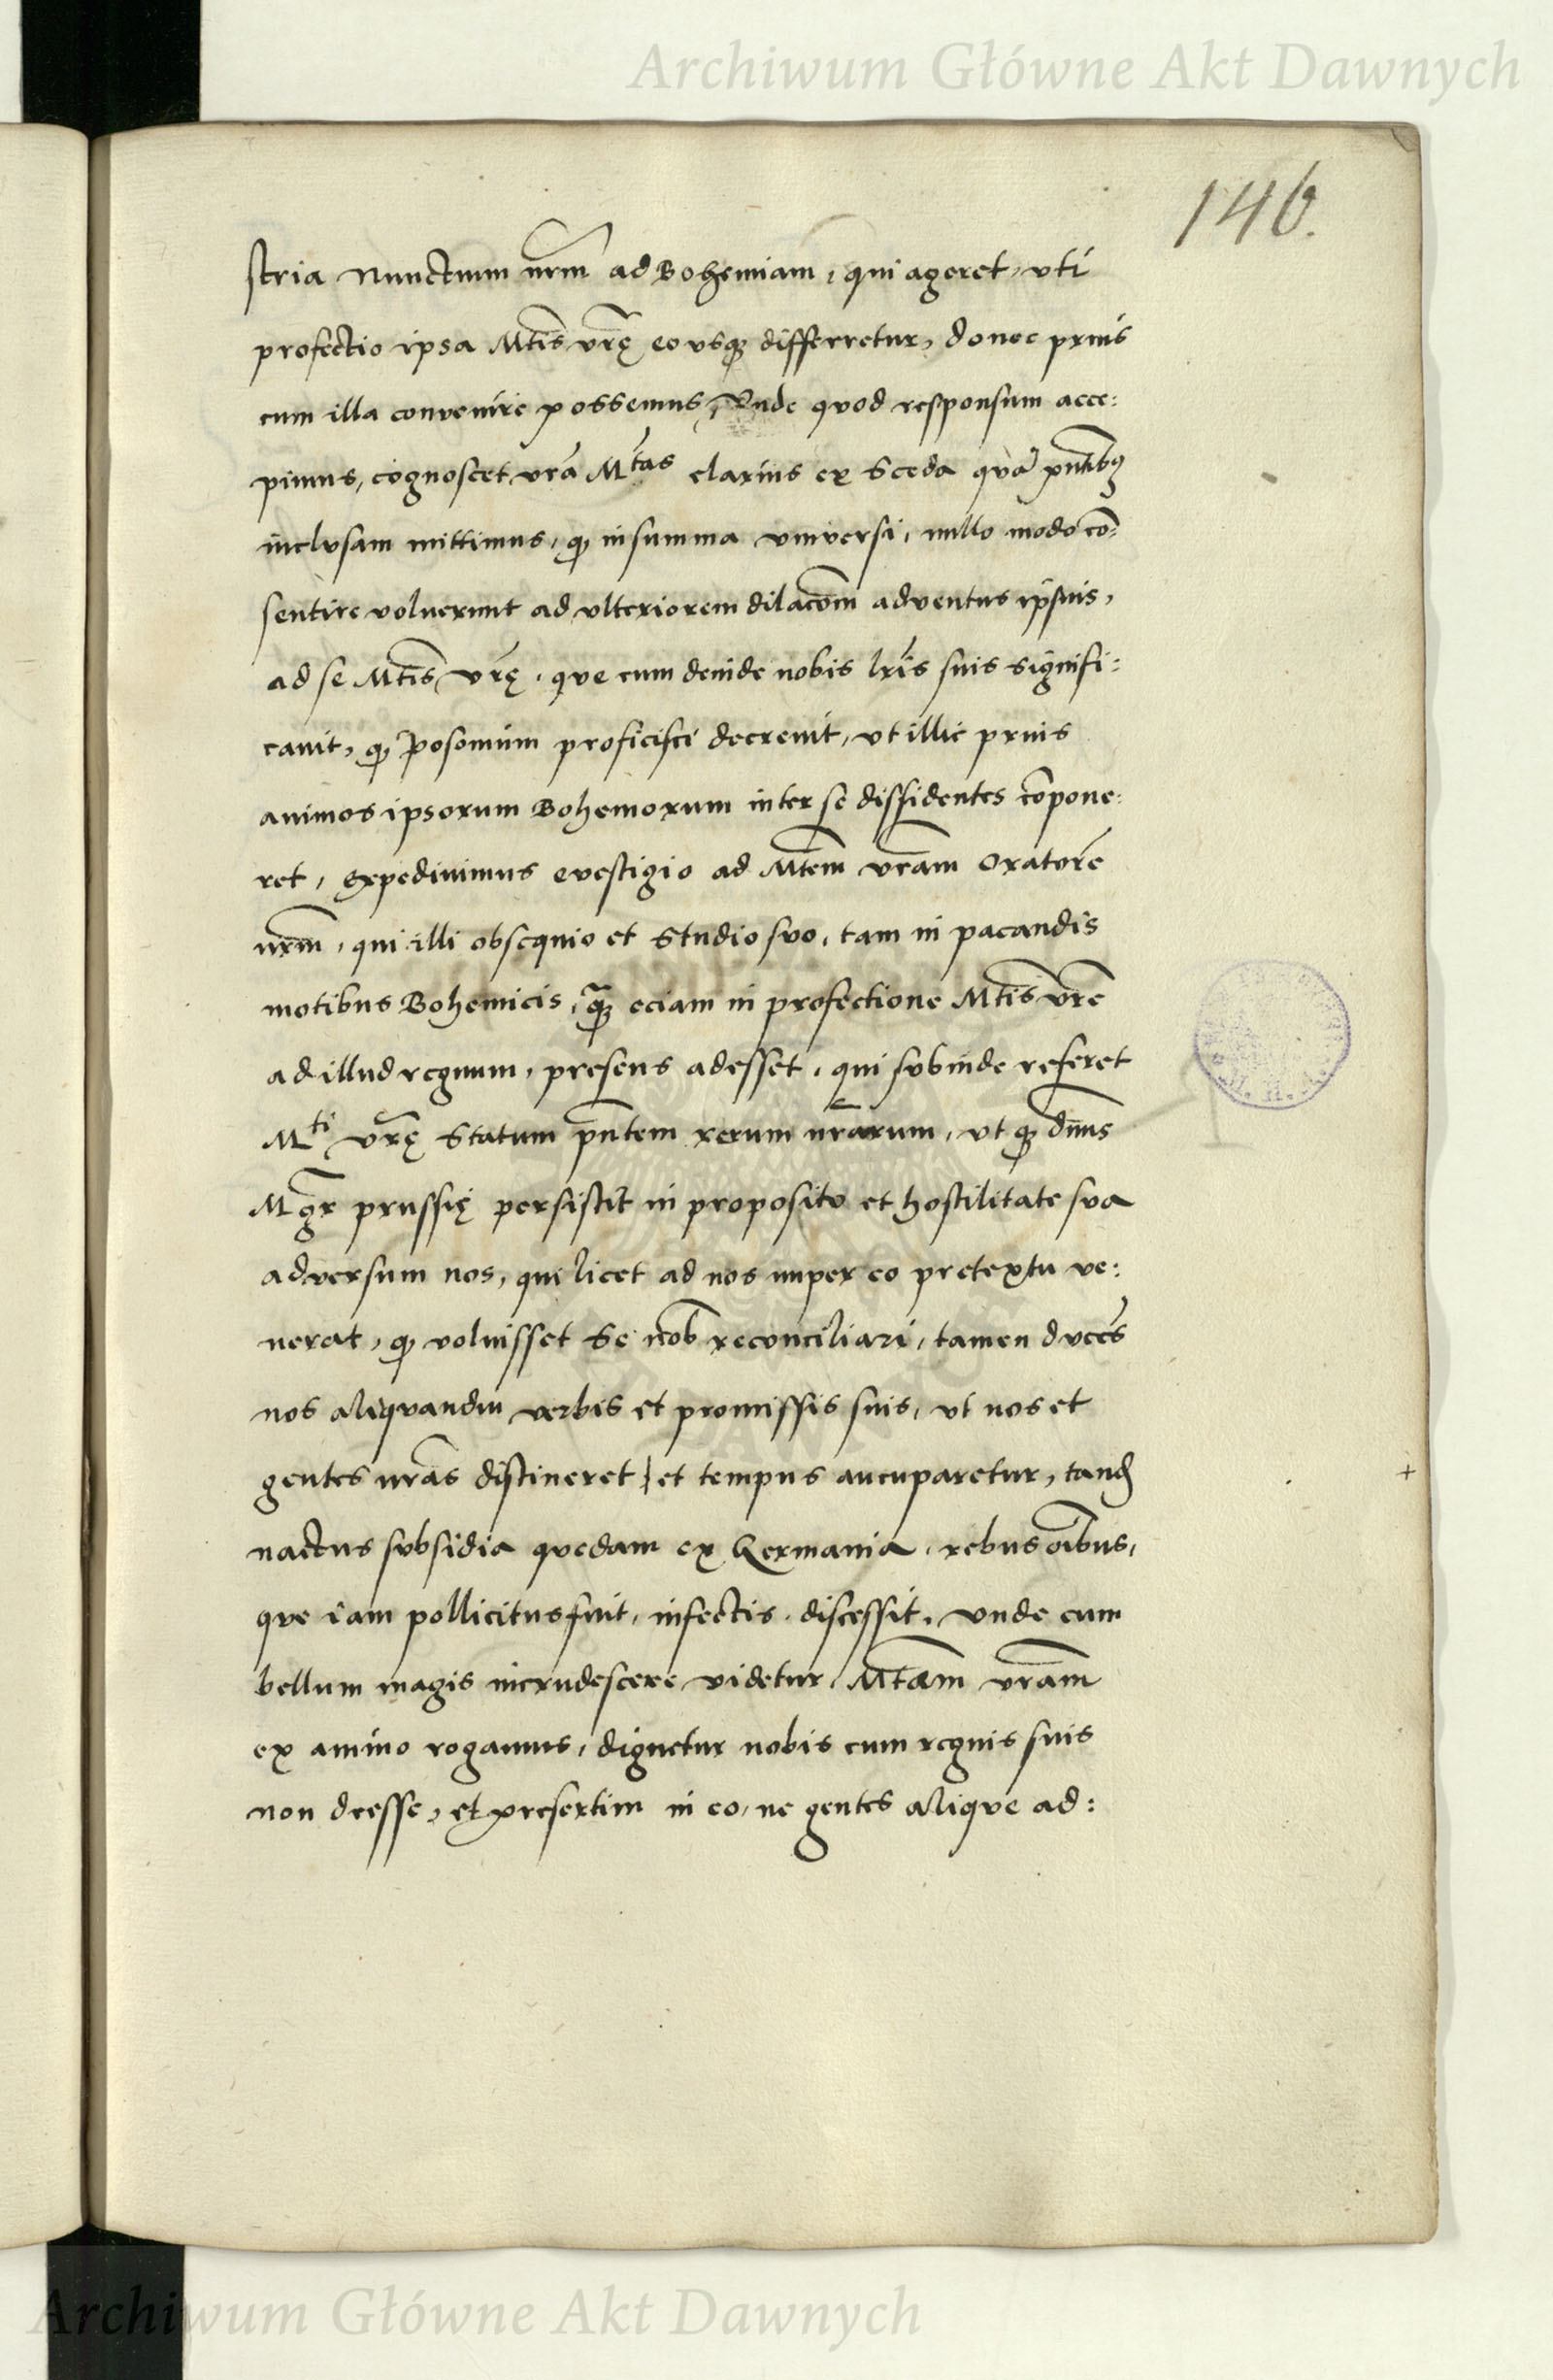 Archiwum Główne Akt Dawnych
146.
stria Nunctium nrm̃ ad Bohemiam, qui ageret, vti
profectio ipsa Mtis vrę eo vsq differretur, donec prius
cum illa convenire possemus, Unde quod responsum acce:
pimus, cognoscet vrã Mtas clarius ex Sceda quã pntibꝫ
inclusam mittimus, ꝙ in summa vniversi, nullo modo cõ:
sentire voluerunt ad vlteriorem dilacõm adventus ip̃ius,
ad se Mtis vrę, que cum deinde nobis lris suis signifi:
cavit, ꝙ Posonium proficisci decrevit, vt illic prius
animos ipsorum Bohemorum inter se dissidentes cõpone:
ret, expedivimus evestigio ad Mtem vram Oratorẽ
nrm̃, qui illi obsequio et Studio suo, tam in pacandis
motibus Bohemicis, ꝙ̃ eciam in profectione Mtis vrẽ
ad illud regnum, presens adesset, qui subinde referet
Mti vrę Statum pñtem rerum nrarum, vt ꝙ dñus
Mgr prussię persistit in proposito et hostilitate sua
adversum nos, qui licet ad nos nuper eo pretextu ve:
nerat, ꝙ voluisset Se nob reconciliari, tamen ducẽs
nos aliquandiu verbis et promissis suis, vt nos et
gentes nrãs distineret, et tempus aucuparetur, tandꝫ
nactus subsidia quedam ex Germania, rebus oĩbus,
que iam pollicitus fuit, infectis, discessit, vnde cum
bellum magis incrudescere videtur, Mtam vram
ex animo rogamus, dignetur nobis cum regnis suis
non deesse, et presertim in eo, ne gentes alique ad:
Archiwum Główne Akt Dawnych